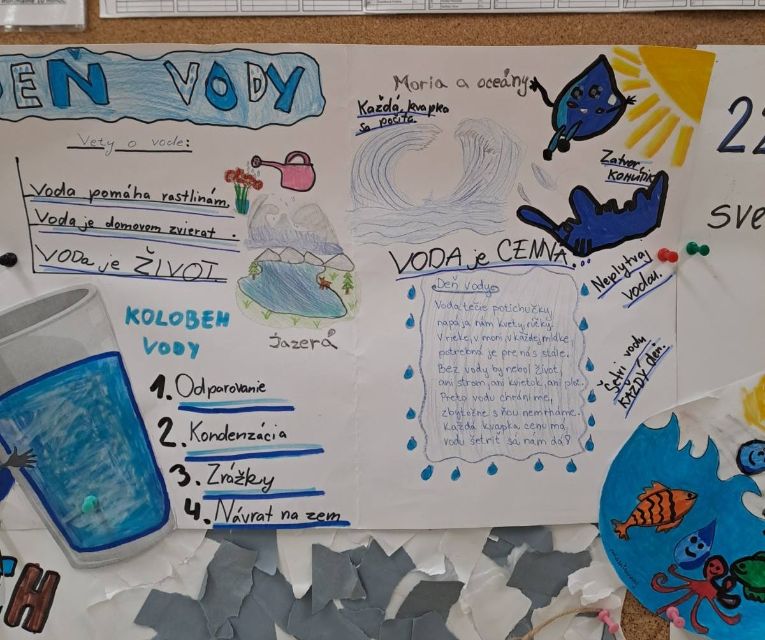 DEŇ VODY
Vety o vode:
Voda pomáha rastlinám
Voda je domovom zvierat.
VODA je ŽIVOT
KOLOBEH
VODY
1. Odparovanie
2. Kondenzácia
3. Zrážky
4. Návrat na zem
Jazerá
Moria a oceány
Každá kvapka
sa počíta
Zatvor
KOHÚTIK
VODA je CENNÁ...
Neplytvaj
vodou.
Šetri vodu
KAŽDÝ deň.
Deň vody
Voda tečie potichučky,
napája nám kvety, rúčky.
V rieke, v mori, v každej mláke,
potrebná je pre nás stále.
Bez vody by nebol život,
ani strom, ani kvietok, ani
Preto vodu chráňme,
zbytočne s ňou nemrháme.
Každá kvapka cenu má,
vodu šetriť sa nám dá!
22
sve
CH